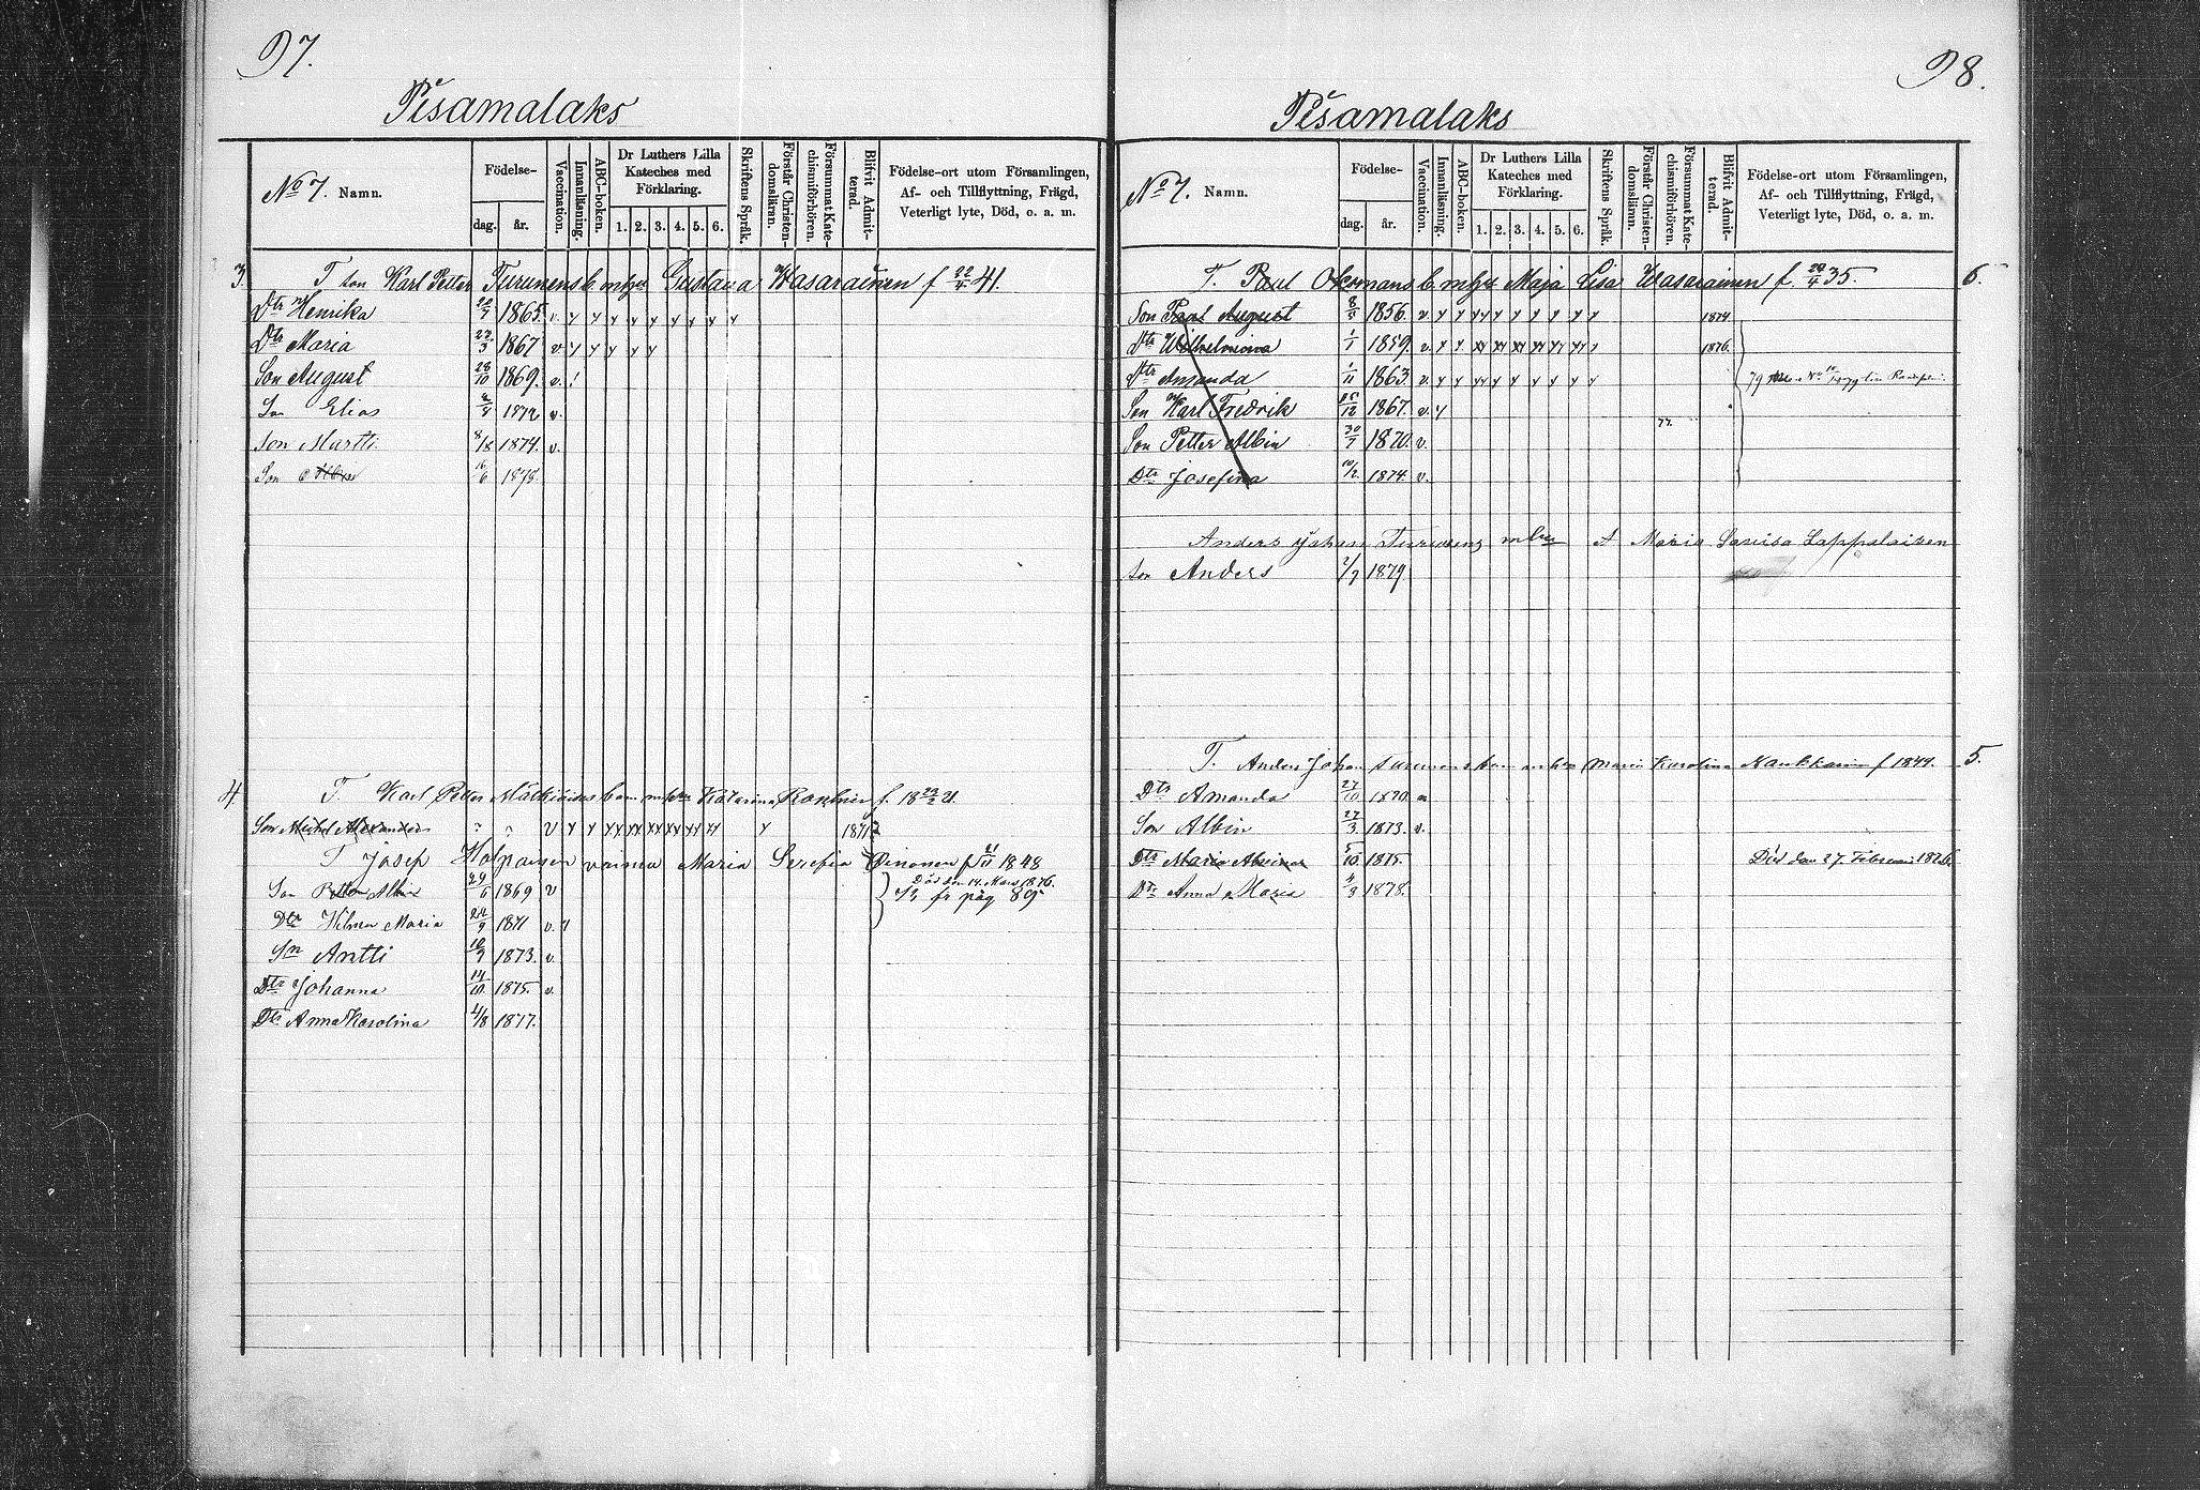 97.
Pisamalaks
No 7. Namn.
Födelse-
dag. år.
Vaccination.
Innanläsning.
ABC-boken.
Dr Luthers Lilla
Kateches med
Förklaring.
1. 2. 3. 4. 5. 6.
Skriftens Språk.
Förstår Christen-
domsläran.
Försummat Kate-
chismiförhören.
Blifvit Admit-
terad.
Födelse-ort utom Församlingen,
Af- och Tillflyttning, Frägd,
Veterligt lyte, Död, o. a. m.
3. T son Karl Petter Turunens b m hu Gustava Wasarainen f 22/4 41.
Dtr Henrika 1865. v. y y y y y y y y y
Dtr Maria 27/3 1867 v. y y y y y
Son August 28/10 1869. v. !
Son Elias 1872 v.
Son Martti 8/8 1874. v.
Son Albin 16/6 1878.
4. T. Karl Petter barn m hu Katarina f. 18 23/2 21.
Son Alexander ? ? v y y xx xx xx xx xx xx y 1871
T Josep Holpainen vaimo Maria Serefia Oinonen f 21/11 1848
Död den 14. Mars 1876.
Son Petter Albin 29/6 1869 v fr päg 89
Dtr Hilma Maria 1871 v. y
Sn Antti 10/9 1873. v.
Dtr Johanna 14/10 1875. v.
Dtr Anna Karolina 4/8 1877.
98.
Pisamalaks
No 7. Namn.
Födelse-
dag. år.
Vaccination.
Innanläsning.
ABC-boken.
Dr Luthers Lilla
Kateches med
Förklaring.
1. 2. 3. 4. 5. 6.
Skriftens Språk.
Förstår Christen-
domslärnn.
Försummat Kate-
chismiförhören.
Blifvit Admit-
terad.
Födelse-ort utom Församlingen,
Af- och Tillflyttning, Frägd,
Veterligt lyte, Död, o. a. m.
T. Paul Okermans b m hu Maja Lisa Wasarainen f. 35. 6.
Son Paul August 1856. v y y xx y y y y y y 1874
Dtr Wilhelmina 1/1 1859. v. y y xx xx xx xx xx xx y 1876.
Dtr Amanda 1/11 1863. v. y y xx y y y y y y 79
Son Karl Fredrik 15/12 1867. v. y 77.
Son Petter Albin 30/7 1870. v.
Dtr Josefina 10/2 1874. v.
Anders Johan Turunens Maria Lovisa Lappalainen
Son Anders 2/9 1879.
T. Anders Johan Turunens barn m hu Maria Karolina f 1849. 5.
Dtr Amanda 27/10 1870
Son Albin 27/3 1873. v.
Dtr Maria 5/10 1875. Död den 27. Februari 1876.
Dtr Anna Maria 4/3 1878.